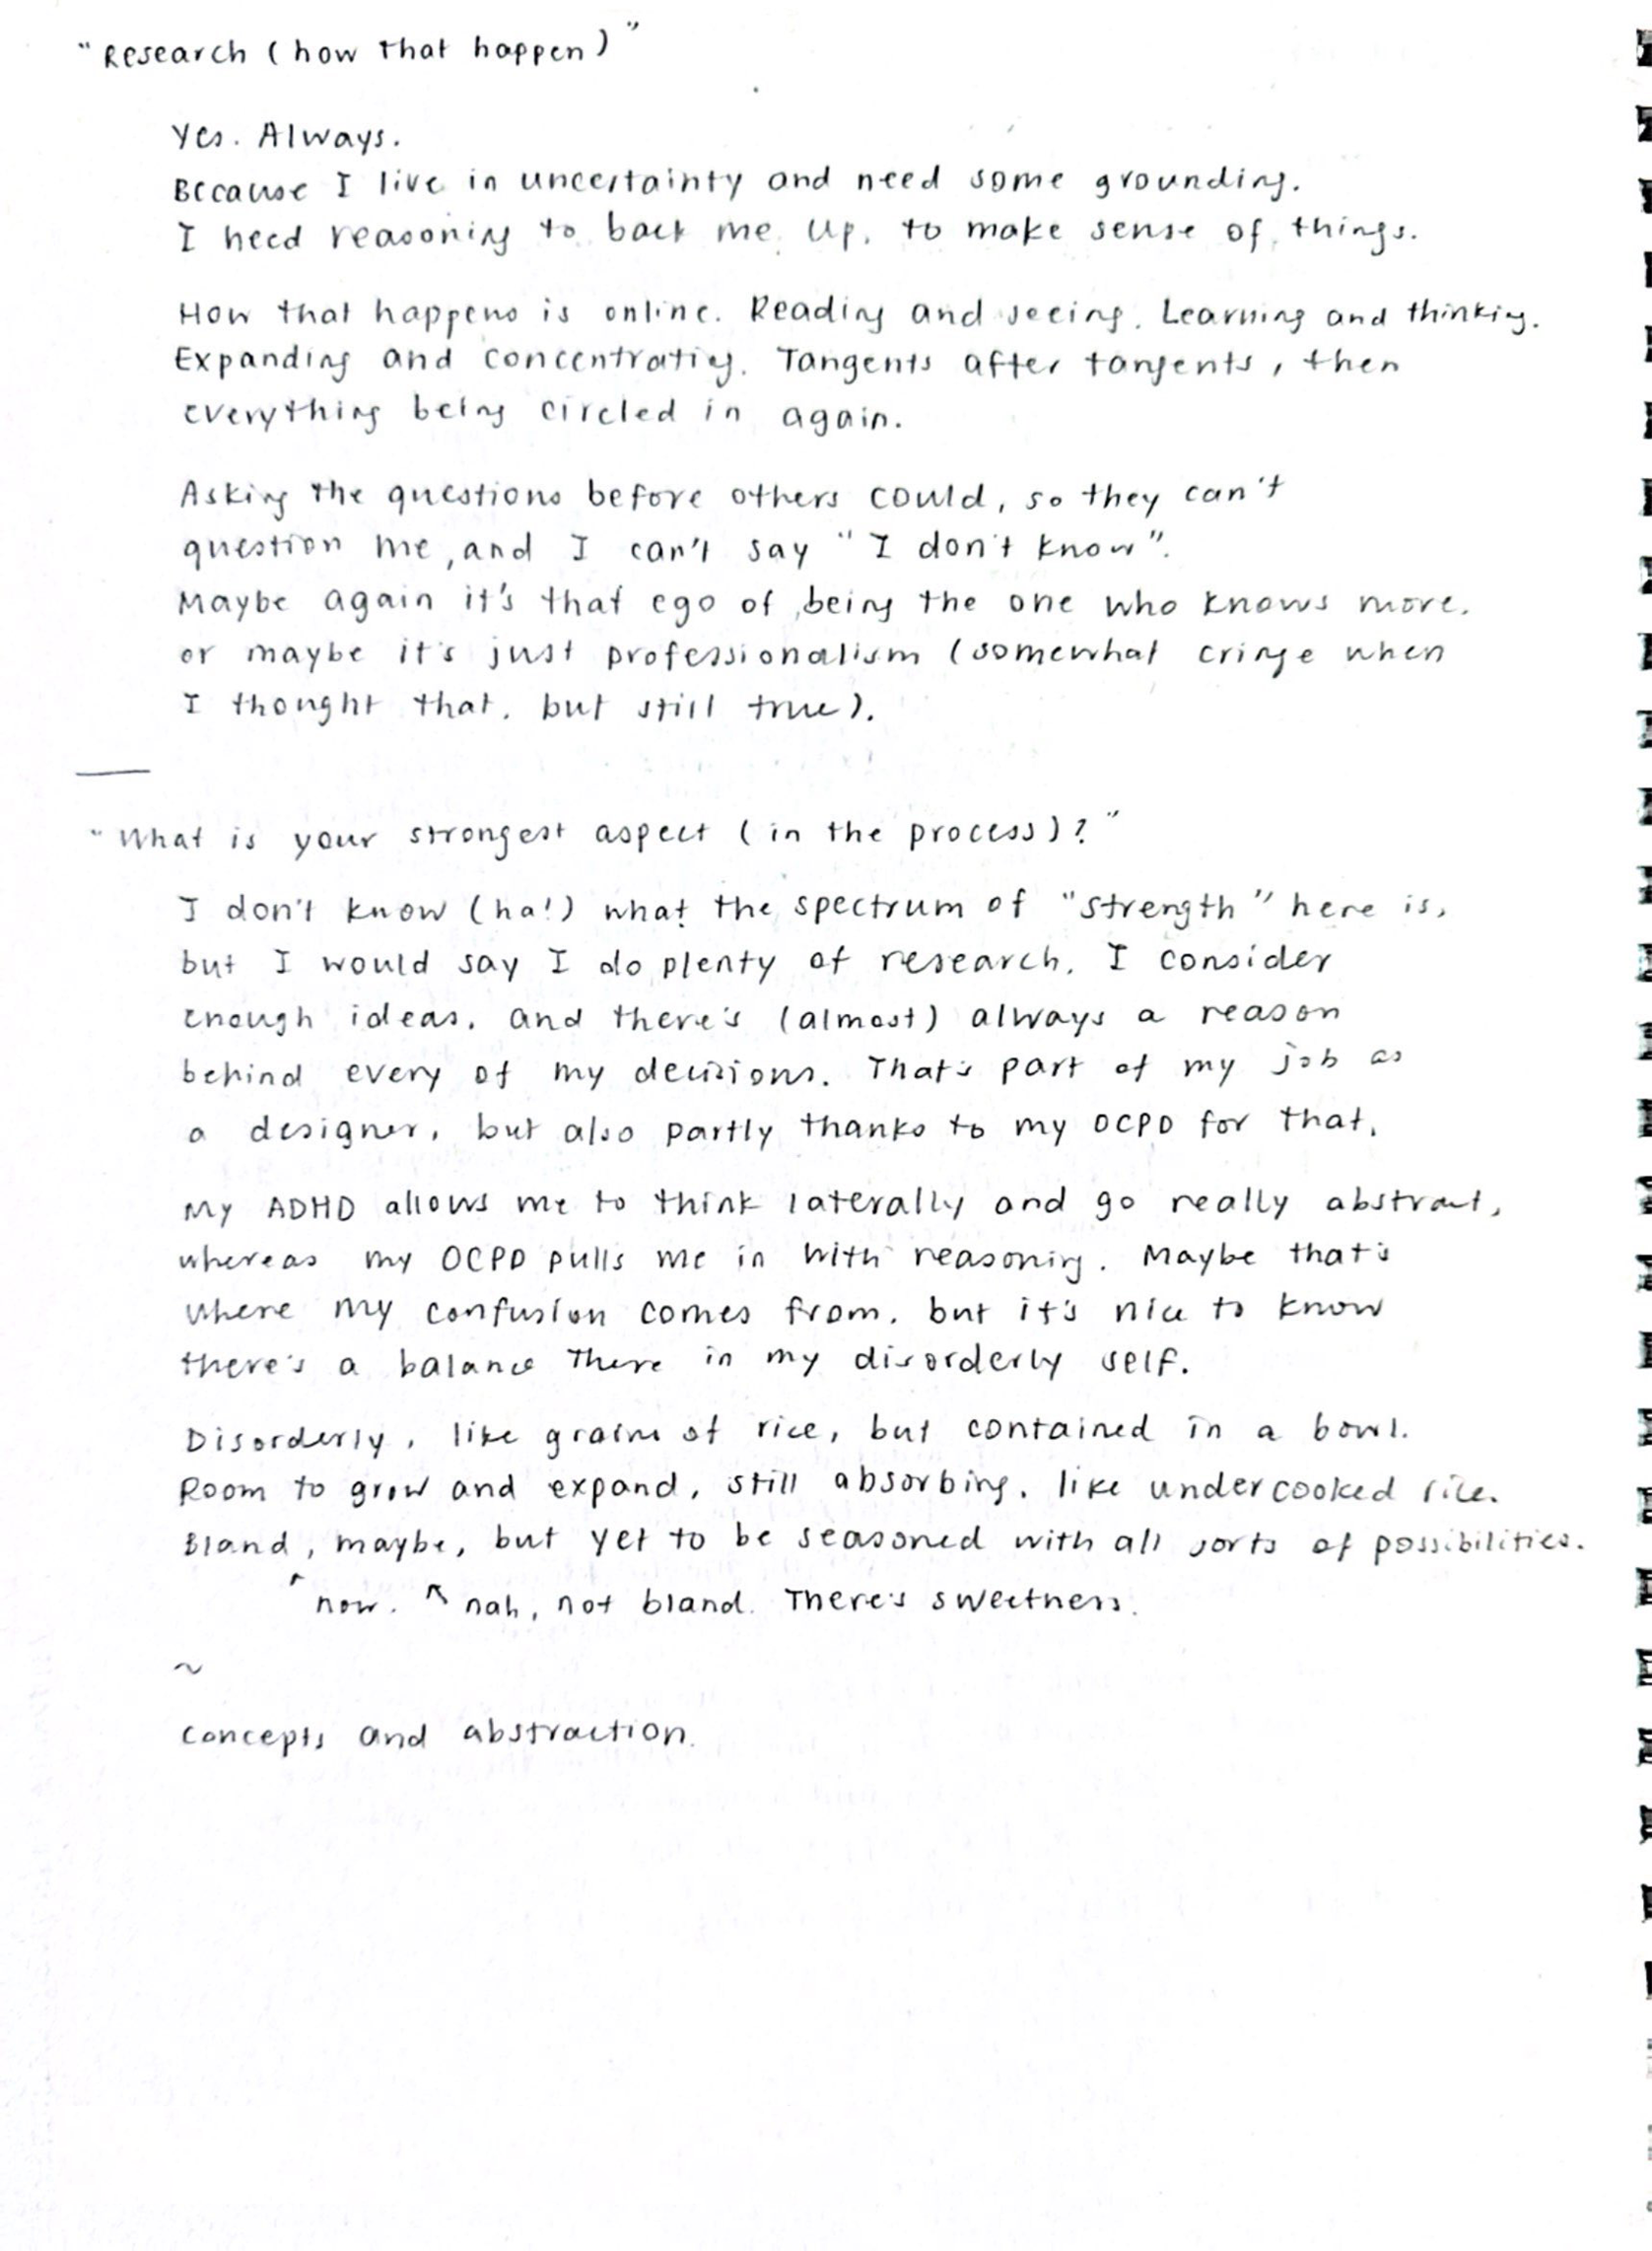 "Research (how that happen)"
Yes. Always.
Because I live in uncertainty and need some grounding.
I need reasoning to back me up, to make sense of things.
How that happens is online. Reading and seeing. Learning and thinking.
Expanding and concentrating. Tangents after tangents, then
everything being circled in again.
Asking the questions before others could, so they can't
question me, and I can't say "I don't know".
Maybe again it's that ego of being the one who knows more.
or maybe it's just professionalism (somewhat cringe when
I thought that, but still true).
"What is your strongest aspect (in the process)?"
I don't know (ha!) what the spectrum of "strength" here is,
but I would say I do plenty of research. I consider
enough ideas. And there's (almost) always a reason
behind every of my decisions. That's part of my job as
a designer, but also partly thanks to my OCPD for that.
My ADHD allows me to think laterally and go really abstract,
whereas my OCPD pulls me in with reasoning. Maybe that's
where my confusion comes from, but it's nice to know
there's a balance there in my disorderly self.
Disorderly, like grains of rice, but contained in a bowl.
Room to grow and expand, still absorbing, like undercooked rice.
Bland, maybe, but yet to be seasoned with all sorts of possibilities.
now. nah, not bland. There's sweetness.
~
Concepts and abstraction.